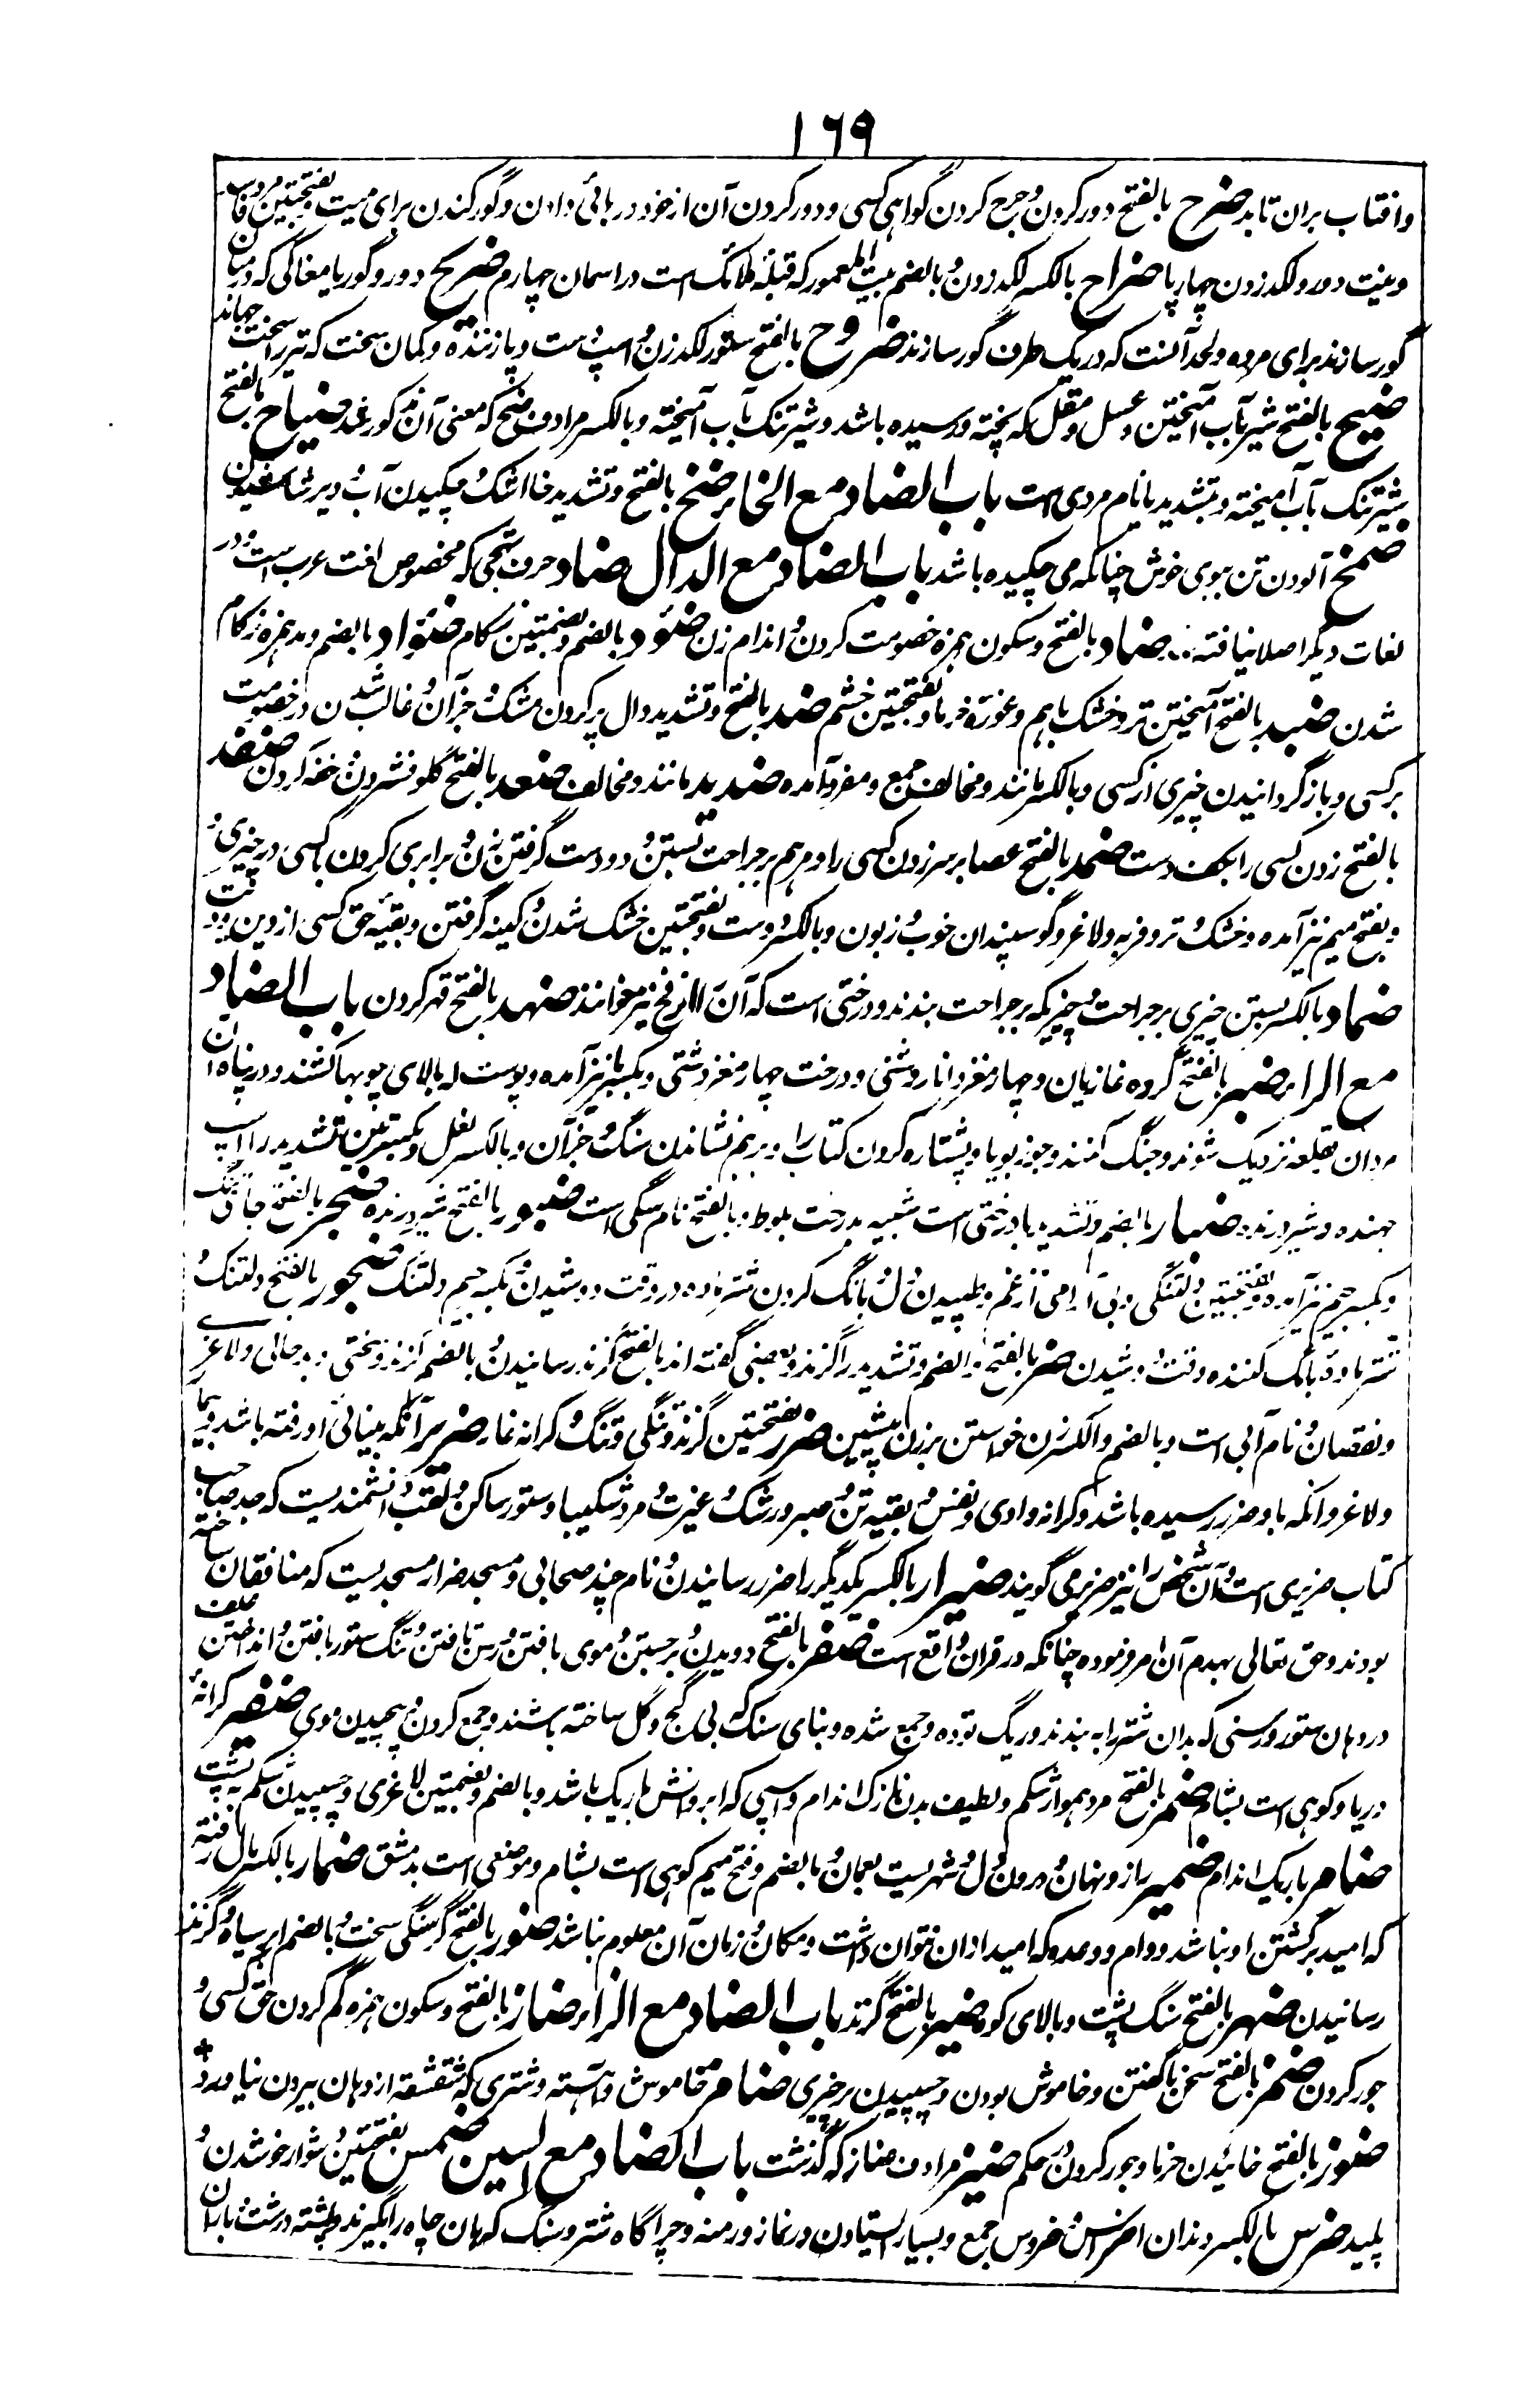 ۱۶۹
وافتاب بران تابد ضرح بالفتح دور کردن و جرح کردن گواهی کسی و دور کردن آن از خود در بائی دادن و گور کندن برای میت بفتحتین مرد
ونیت دور و لکد زدن چهارپا ضراح بالکسر لکد زدن و بالضم بیت المعمور که قبلهٔ ملائک است در اسمان چهارم ضریح دور و گور یا مغاکی که در میان
گور سازند برای مرده و لحد آنست که در یک طرف گور سازند ضروح بالفتح ستور لکد زن و اسپ مست و پا زننده و کمان سخت که تیر را سخت جهاند
ضیح بالفتح شیر بآب آمیختن و عسل و مقل که پخته و رسیده باشد و شیر تنک بآب آمیخته و بالکسر مرادف ضح که معنی آن مذکور شد ضیاح بالفتح
شیر تنک بآب آمیخته و بتشدید یا نام مردی است باب الضاد مع الخاء ضخ بالفتح و تشدید خا اشک و چکیدن آب و دیر
ضمخ آلودن تن ببوی خوش چنانکه می چکیده باشد باب الضاد مع الدال ضاد حرف تهجی که مخصوص لغت عرب است و در
لغات دیگر اصلا نیافته ضأد بالفتح و سکون همزه خصومت کردن و اندام زن ضئود بالضم و بضمتین زکام ضؤاد بالضم و مد همزه زکام
شدن ضبد بالفتح آمیختن تر و خشک باهم و غورهٔ خرما و بفتحتین خشم ضد بالفتح و تشدید دال پر کردن مشک و جز آن و غالب شدن در خصومت
بر کسی و باز گردانیدن چیزی از کسی و بالکسر مانند و مخالف جمع و مفرد آمده ضدید مانند و مخالف ضغد بالفتح گلو فشردن و خفه کردن ضفد
بالفتح زدن کسی را بکف دست ضمد بالفتح عصا بر سر زدن کسی را و مرهم بر جراحت بستن و دو دست گرفتن زن و برابری کردن باکسی در چیزی و
و بفتح میم نیز آمده و خشک و تر و فربه و لاغر و گوسپندان خوب و زبون و بالکسر دوست و بفتحتین خشک شدن و کینه گرفتن و بقیهٔ حق کسی از دین
ضماد بالکسر بستن چیزی بر جراحت و چیزیکه بر جراحت بندند و درختی است که آن را نیز میخوانند ضهد بالفتح قهر کردن باب الضاد
مع الراء ضبر بالفتح گروه غازیان و چهار مغز و انار دشتی و درخت چهار مغز دشتی و بکسر با نیز آمده و پوست که بالای چوبها کشند و در پناه آن
مردان بقلعه نزدیک شوند و جنگ کنند و جوز بویا و پشتاره کردن کتاب را و برهم نشاندن سنگ و جز آن و بالکسر بغل و بکسرتین و تشدید را اسپ
جهنده و شیر درنده ضبار بالضم و تشدید با درختی است شبیه بدرخت بلوط و بالفتح نام سگی است ضبور بالفتح شیر درنده ضجر بالفتح جای تنگ
و بکسر جیم نیز آمده و بفتحتین دلتنگی و بی آرامی از غم و طپیدن دل و بانگ کردن شتر ماده در وقت دوشیدن و بکسر جیم دلتنگ ضجور بالفتح دلتنگ و
شتر ماده بانگ کننده وقت دوشیدن ضر بالفتح و الضم و تشدید را گزند و بعضی گفته اند بالفتح گزند رسانیدن و بالضم گزند و سختی و بدحالی و لاغری
و نقصان و نام آبی است و بالضم و الکسر زن خواستن بر زن پیشین ضرر بفتحتین گزند و تنگی و تنگ و کرانه غار ضریر آنکه بینائی او رفته باشد و بیمار
و لاغر و انکه باو ضرر رسیده باشد و کرانه وادی و نفس و بقیه تن و صبر و رشک و غیرت و مرد شکیبا و ستور ساکن و لقب دانشمندیست که جد صاحب
کتاب ضریری است و آن شخص را نیز ضریر می گویند ضرار بالکسر یکدیگر را ضرر رسانیدن و نام چند صحابی و مسجد ضرار مسجدیست که منافقان ساخته
بودند و حق تعالی بهدم آن امر فرموده چنانکه در قران واقع است ضفر بالفتح دویدن و برجستن و موی بافتن و رسن تافتن و تنگ ستور بافتن و انداختن علف
در دهان ستور و رسنی که بدان شتر را به بندند و ریگ توده و جمع شده و بنای سنگ که بی گچ و گل ساخته باشند و جمع کردن و پیچیدن موی ضفیر کرانهٔ
دریا و کوهی است بشام ضمر بالفتح مرد هموار شکم و لطیف بدن نازک اندام و اسپی که ابروانش باریک باشد و بالضم و بضمتین لاغری و چسپیدن شکم به پشت
ضامر باریک اندام ضمیر راز و نهان و درون دل و شهریست بعمان و بالضم و فتح میم کوهی است بشام و موضعی است بدمشق ضمار بالکسر مال رفته
که امید برگشتن او نباشد و وام و وعده که امید ادای آن نتوان داشت و مکان و زمان آن معلوم نباشد ضور بالفتح گرسنگی سخت و بالضم ابر سیاه و گزند
رسانیدن ضهر بالفتح سنگ پشت و بالای کوه ضیر بالفتح گزند باب الضاد مع الزاء ضأز بالفتح و سکون همزه گم کردن حق کسی و
جور کردن ضمز بالفتح سخن ناگفتن و خاموش بودن و چسپیدن بر چیزی ضامز خاموش و آهسته و شتری که شقشقه از دهان بیرون نیاورد
ضوز بالفتح خائیدن خرما و جور کردن در حکم ضیز مرادف ضأز که گذشت باب الضاد مع السین ضمس بفتحتین دشوار خو شدن و
پلید ضرس بالکسر دندان اضراس و ضروس جمع و بسیار ایستادن در نماز و درمنه و چراگاه شتر و سنگ که دهان چاه را بگیرند و پشته درشت و باران